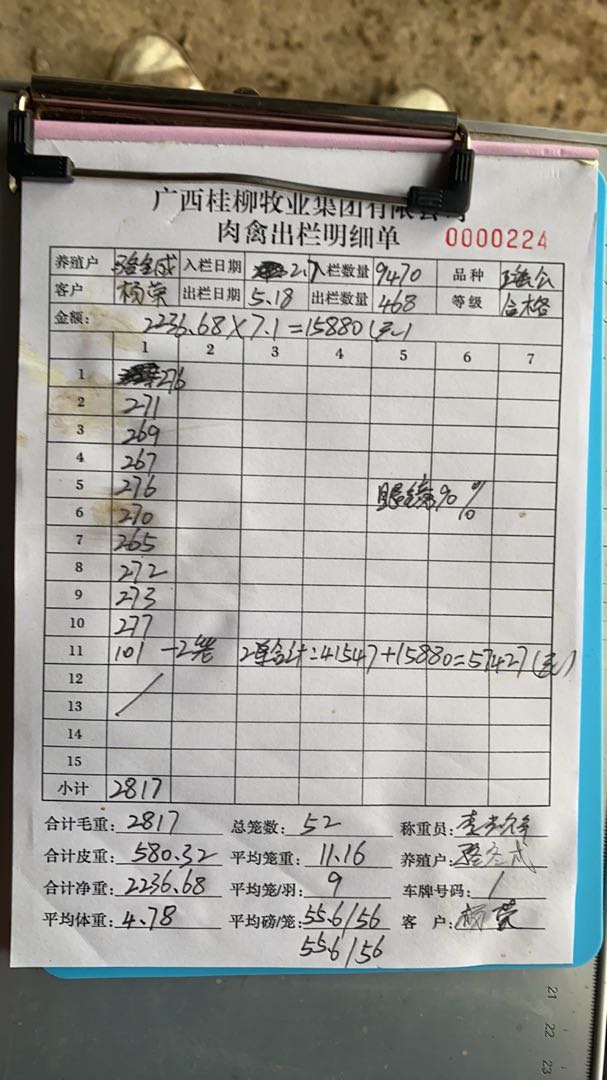 广西桂柳牧业集团有限公司
肉禽出栏明细单 0000224
养殖户 成 入栏日期 2.7 入栏数量 9470 品种
客户 杨荣 出栏日期 5.18 出栏数量 468 等级 合格
金额: 2236.68×7.1=15880(元)
1 2 3 4 5 6 7
1 276
2 271
3 269
4 267
5 276 90%
6 270
7 265
8 272
9 273
10 277
11 101 -2笼 2单合计:41547+15880=57427(元)
12
13
14
15
小计 2817
合计毛重: 2817 总笼数: 52 称重员: 李
合计皮重: 580.32 平均笼重: 11.16 养殖户: 成
合计净重: 2236.68 平均笼/羽: 9 车牌号码: /
平均体重: 4.78 平均磅/笼: 55.6/56 客 户: 杨荣
55.6/56
21
22
23